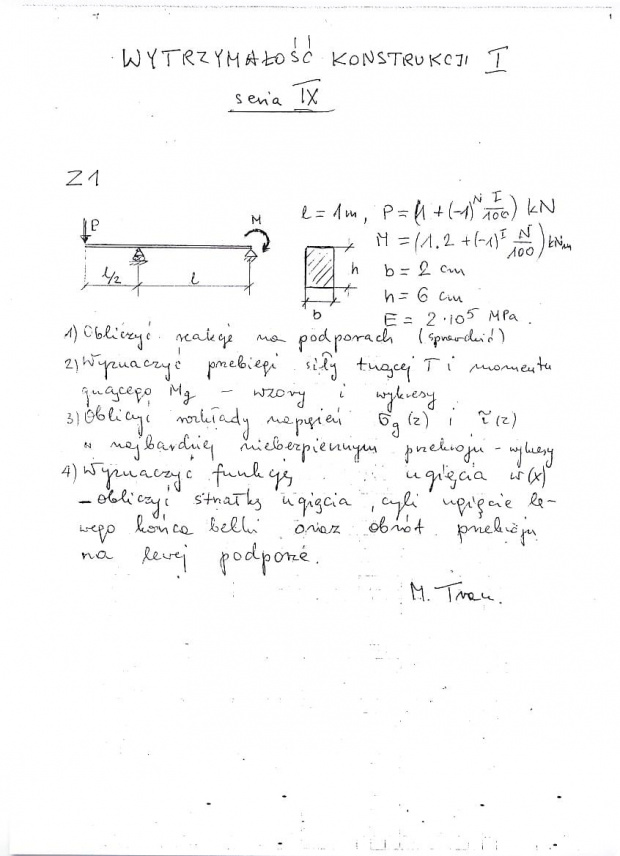 WYTRZYMAŁOŚĆ KONSTRUKCJI I
seria IX
Z1
P
M
l/2
l
h
b
l = 1m, P = (1 + (-1)^N I/100) kN
M = (1.2 + (-1)^I N/100) kNm
b = 2 cm
h = 6 cm
E = 2·10^5 MPa.
1) Obliczyć reakcje na podporach (sprawdzić)
2) Wyznaczyć przebiegi siły tnącej T i momentu
gnącego Mg – wzory i wykresy
3) Obliczyć rozkłady naprężeń σg(z) i τ(z)
w najbardziej niebezpiecznym przekroju – wykresy
4) Wyznaczyć funkcję ugięcia w(x)
– obliczyć strzałkę ugięcia, czyli ugięcie le-
wego końca belki oraz obrót przekroju
na lewej podporze.
M.